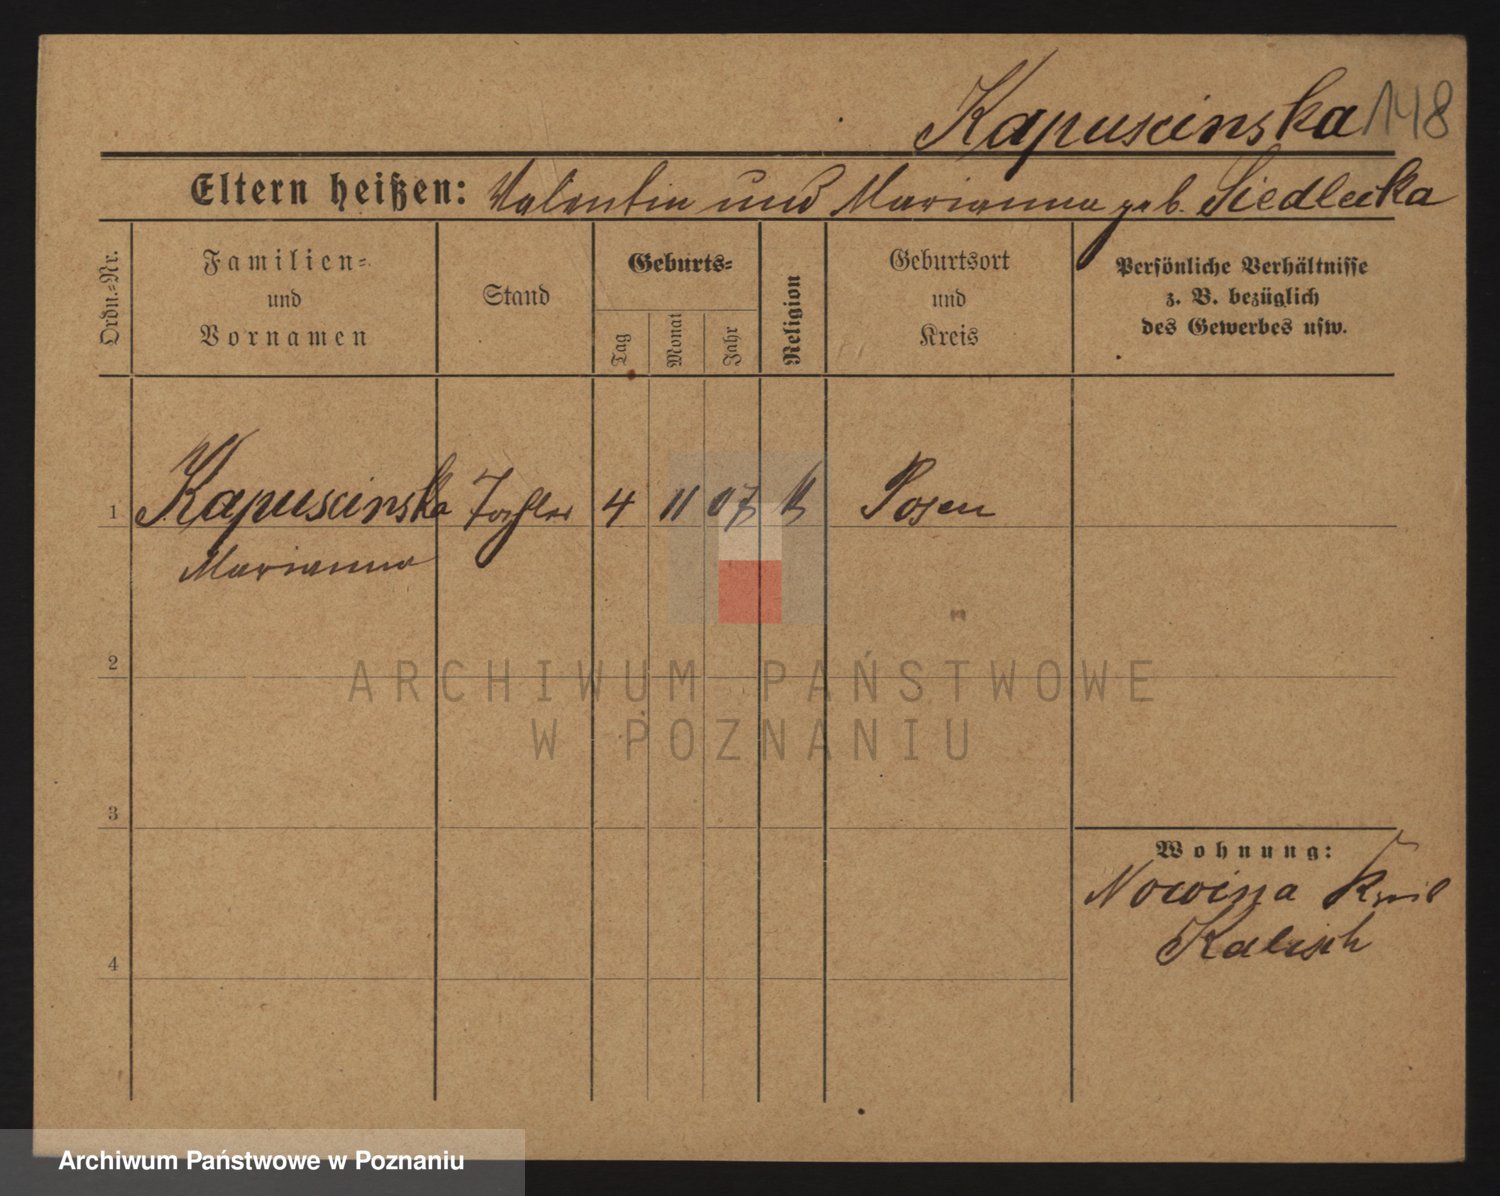 Kapuscinska 148
Eltern heißen: Valentin und Marianna geb. Siedlecka
Ordn.-Nr.
Familien-
und
Vornamen
Stand
Geburts-
Tag
Monat
Jahr
Religion
Geburtsort
und
Kreis
Persönliche Verhältnisse
z. B. bezüglich
des Gewerbes usw.
1 Kapuscinska Tochter 4 11 07 k Posen
Marianna
2
3
4
Wohnung:
Nowina Kreis
Kalisch
ARCHIWUM PAŃSTWOWE
W POZNANIU
Archiwum Państwowe w Poznaniu